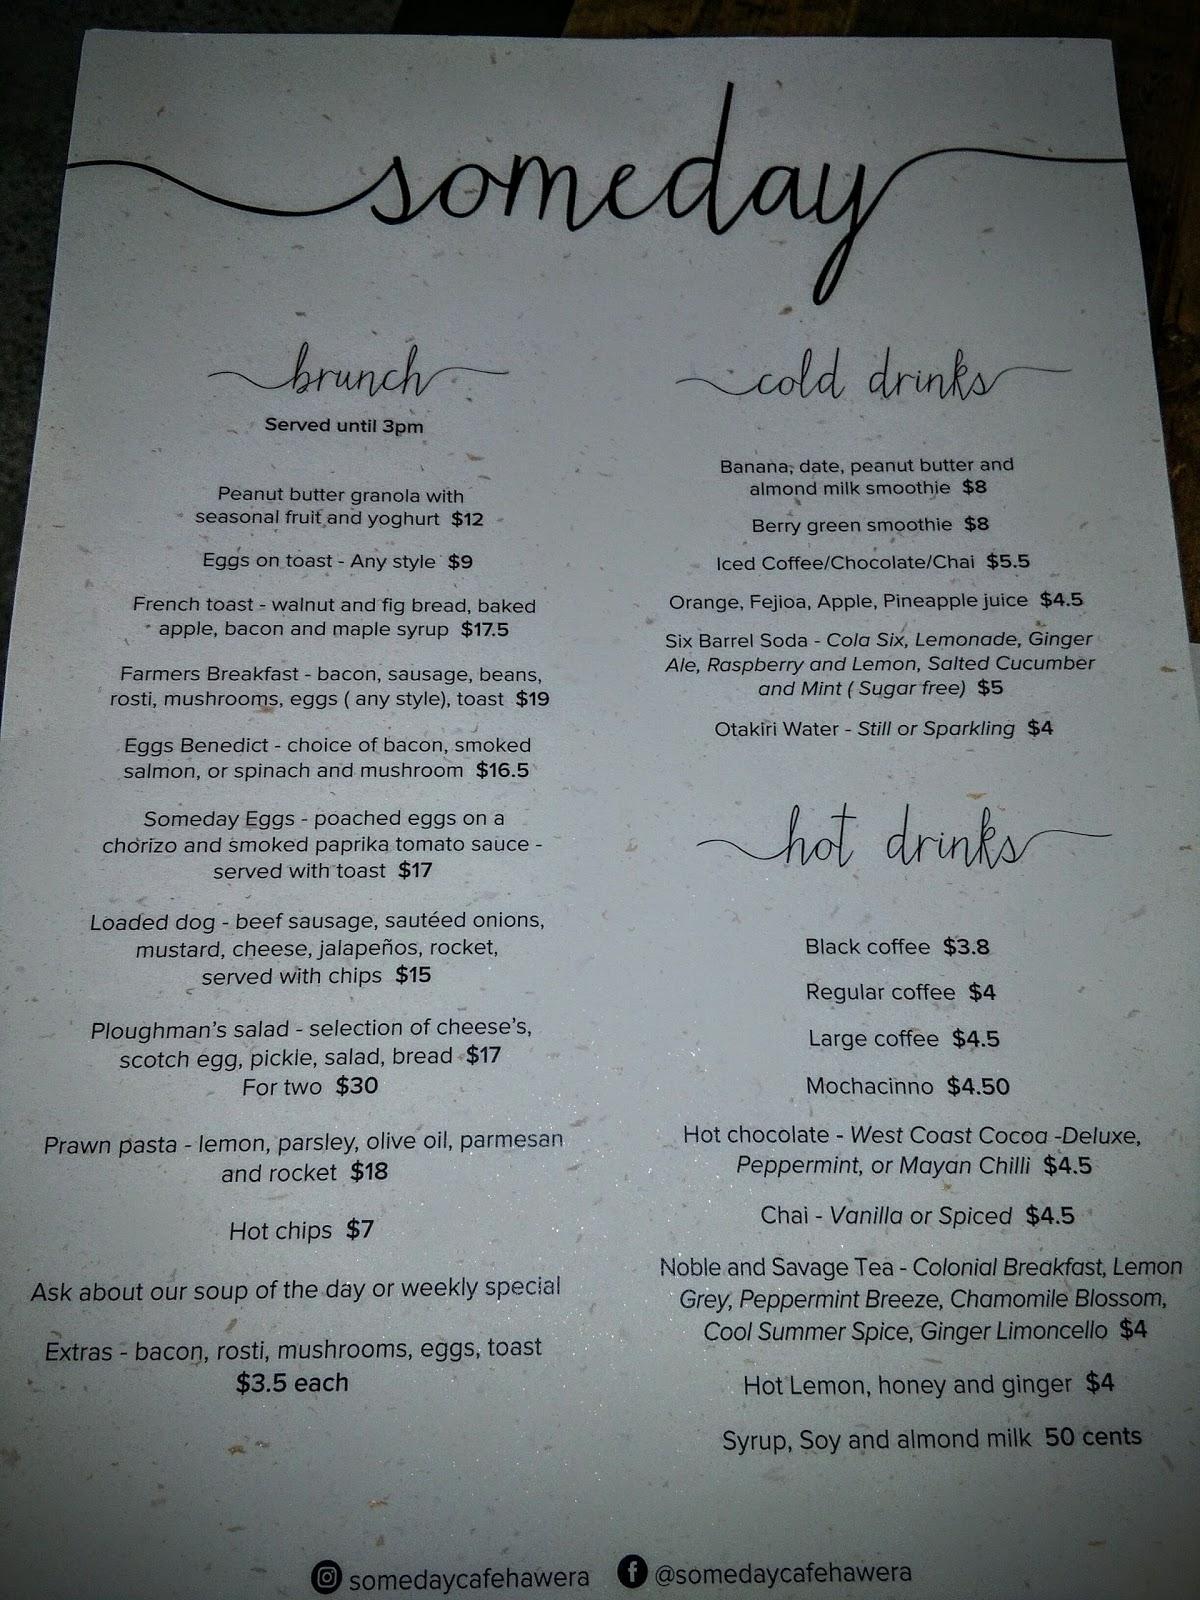 someday
brunch
Served until 3pm
Peanut butter granola with
seasonal fruit and yoghurt $12
Eggs on toast - Any style $9
French toast - walnut and fig bread, baked
apple, bacon and maple syrup $17.5
Farmers Breakfast - bacon, sausage, beans,
rosti, mushrooms, eggs ( any style), toast $19
Eggs Benedict - choice of bacon, smoked
salmon, or spinach and mushroom $16.5
Someday Eggs - poached eggs on a
chorizo and smoked paprika tomato sauce -
served with toast $17
Loaded dog - beef sausage, sautéed onions,
mustard, cheese, jalapeños, rocket,
served with chips $15
Ploughman's salad - selection of cheese's,
scotch egg, pickle, salad, bread $17
For two $30
Prawn pasta - lemon, parsley, olive oil, parmesan
and rocket $18
Hot chips $7
Ask about our soup of the day or weekly special
Extras - bacon, rosti, mushrooms, eggs, toast
$3.5 each
cold drinks
Banana, date, peanut butter and
almond milk smoothie $8
Berry green smoothie $8
Iced Coffee/Chocolate/Chai $5.5
Orange, Fejioa, Apple, Pineapple juice $4.5
Six Barrel Soda - Cola Six, Lemonade, Ginger
Ale, Raspberry and Lemon, Salted Cucumber
and Mint ( Sugar free) $5
Otakiri Water - Still or Sparkling $4
hot drinks
Black coffee $3.8
Regular coffee $4
Large coffee $4.5
Mochacinno $4.50
Hot chocolate - West Coast Cocoa -Deluxe,
Peppermint, or Mayan Chilli $4.5
Chai - Vanilla or Spiced $4.5
Noble and Savage Tea - Colonial Breakfast, Lemon
Grey, Peppermint Breeze, Chamomile Blossom,
Cool Summer Spice, Ginger Limoncello $4
Hot Lemon, honey and ginger $4
Syrup, Soy and almond milk 50 cents
somedaycafehawera @somedaycafehawera